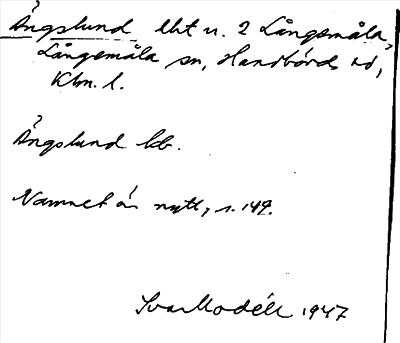 Ängslund lht u. 2 Långsmåla,
Långemåla sn, Handbörds hd,
Klm. l.
Ängslund lb.
Namnet är nytt, s. 149.
Ivar Modéer 1947